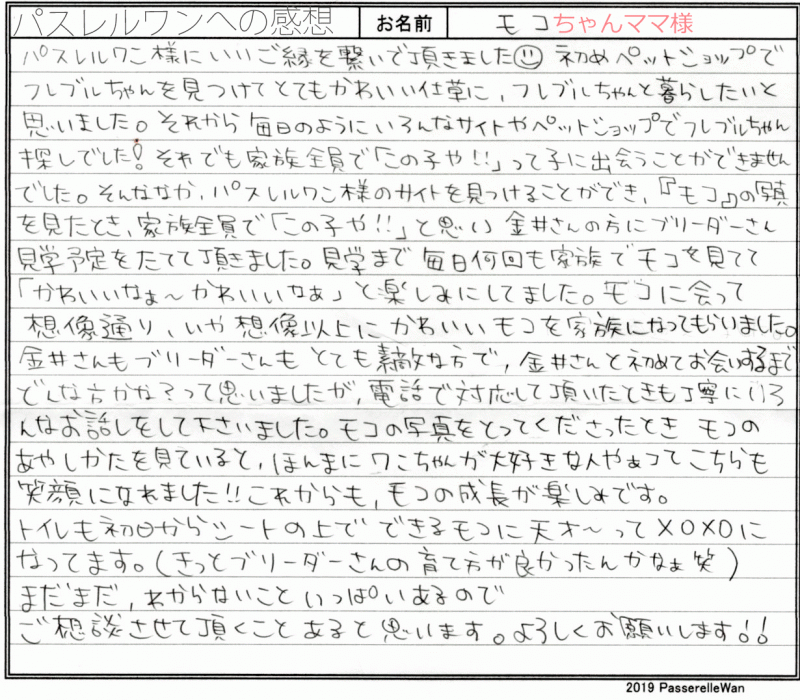 パスレルワンへの感想 お名前 モコちゃんママ様
パスレルワン様にいいご縁を繋いで頂きました☺ 初めペットショップで
フレブルちゃんを見つけてとてもかわいい仕草に、フレブルちゃんと暮らしたいと
思いました。それから毎日のようにいろんなサイトやペットショップでフレブルちゃん
探しでした! それでも家族全員で「この子や!!」って子に出会うことができません
でした。そんななか、パスレルワン様のサイトを見つけることができ、『モコ』の写真
を見たとき、家族全員で「この子や!!」と思い 金井さんの方にブリーダーさん
見学予定をたてて頂きました。見学まで 毎日何回も家族でモコを見てて
「かわいいなぁ〜かわいいなぁ」と楽しみにしてました。モコに会って
想像通り、いや想像以上にかわいいモコを家族になってもらいました。
金井さんもブリーダーさんも とても素敵な方で、金井さんと初めてお会いするまで
どんな方かな?って思いましたが、電話で対応して頂いたときも丁寧にいろ
んなお話しをして下さいました。モコの写真をとってくださったとき モコの
あやしかたを見ていると、ほんまにワンちゃんが大好きな人やぁってこちらも
笑顔になれました!!これからも、モコの成長が楽しみです。
トイレも初日からシートの上でできるモコに天才〜ってメロメロに
なってます。(きっとブリーダーさんの育て方が良かったんかなぁ笑)
まだまだ、わからないこといっぱいあるので
ご相談させて頂くことあると思います。よろしくお願いします!!
2019 PasserelleWan